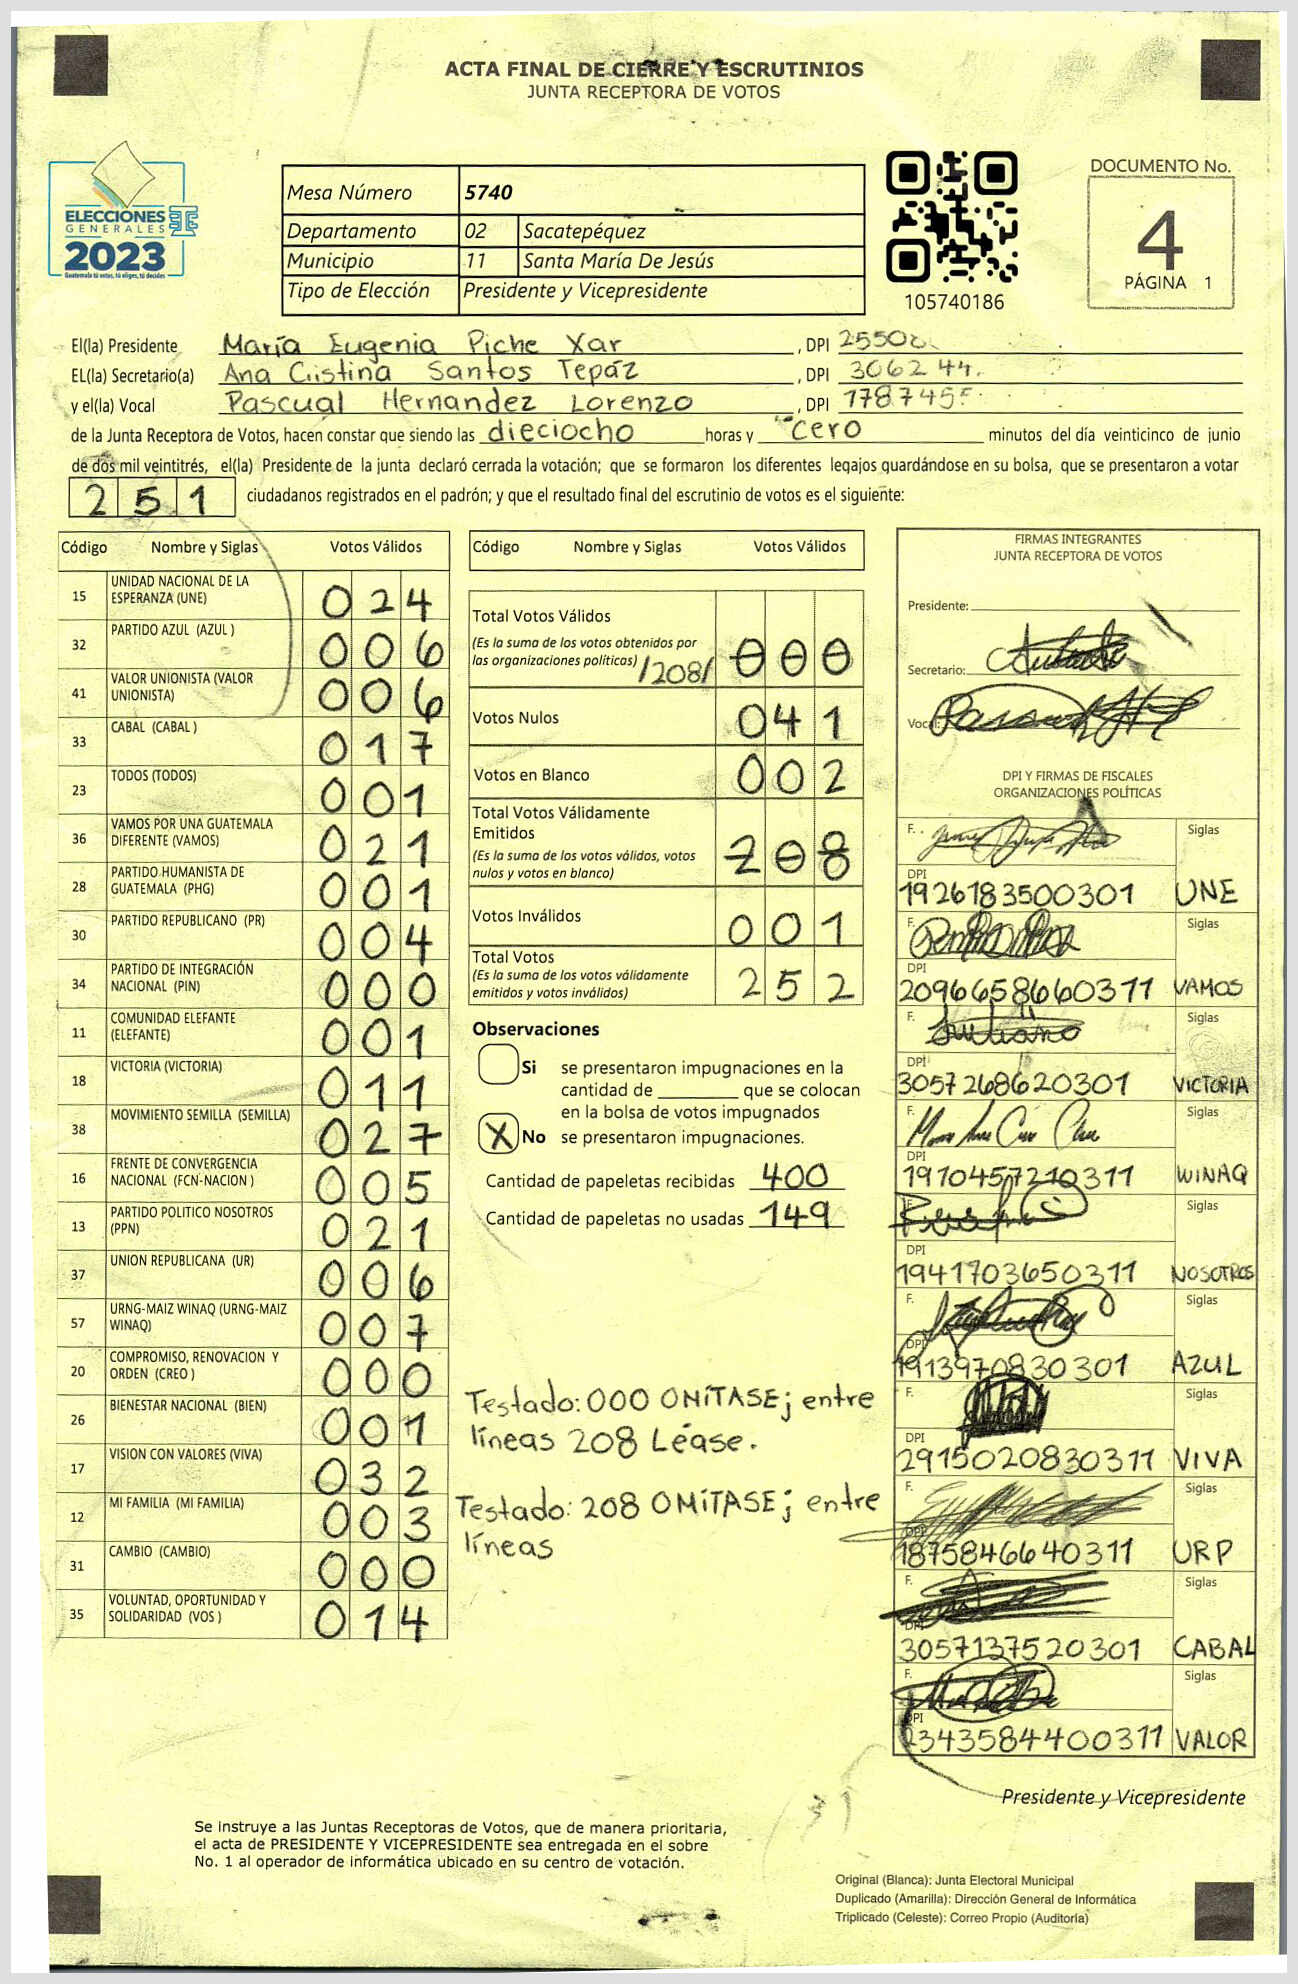 ACTA FINAL DE CIERRE Y ESCRUTINIOS
JUNTA RECEPTORA DE VOTOS
ELECCIONES
GENERALES
2023
Guatemala tú votas, tú eliges, tú decides
Mesa Número 5740
Departamento 02 Sacatepéquez
Municipio 11 Santa María De Jesús
Tipo de Elección Presidente y Vicepresidente
105740186
DOCUMENTO No.
4
PÁGINA 1
El(la) Presidente María Eugenia Piche Xar, DPI 25508
EL(la) Secretario(a) Ana Cristina Santos Tepáz, DPI 306244
y el(la) Vocal Pascual Hernandez Lorenzo, DPI 178745
de la Junta Receptora de Votos, hacen constar que siendo las dieciocho horas y cero minutos del día veinticinco de junio
de dos mil veintitrés, el(la) Presidente de la junta declaró cerrada la votación; que se formaron los diferentes legajos guardándose en su bolsa, que se presentaron a votar
251 ciudadanos registrados en el padrón; y que el resultado final del escrutinio de votos es el siguiente:
Código Nombre y Siglas Votos Válidos
15 UNIDAD NACIONAL DE LA ESPERANZA (UNE) 024
32 PARTIDO AZUL (AZUL ) 006
41 VALOR UNIONISTA (VALOR UNIONISTA) 006
33 CABAL (CABAL ) 017
23 TODOS (TODOS) 001
36 VAMOS POR UNA GUATEMALA DIFERENTE (VAMOS) 021
28 PARTIDO HUMANISTA DE GUATEMALA (PHG) 001
30 PARTIDO REPUBLICANO (PR) 004
34 PARTIDO DE INTEGRACIÓN NACIONAL (PIN) 000
11 COMUNIDAD ELEFANTE (ELEFANTE) 001
18 VICTORIA (VICTORIA) 011
38 MOVIMIENTO SEMILLA (SEMILLA) 027
16 FRENTE DE CONVERGENCIA NACIONAL (FCN-NACION ) 005
13 PARTIDO POLITICO NOSOTROS (PPN) 021
37 UNION REPUBLICANA (UR) 006
57 URNG-MAIZ WINAQ (URNG-MAIZ WINAQ) 007
20 COMPROMISO, RENOVACION Y ORDEN (CREO ) 000
26 BIENESTAR NACIONAL (BIEN) 001
17 VISION CON VALORES (VIVA) 032
12 MI FAMILIA (MI FAMILIA) 003
31 CAMBIO (CAMBIO) 000
35 VOLUNTAD, OPORTUNIDAD Y SOLIDARIDAD (VOS ) 014
Código Nombre y Siglas Votos Válidos
Total Votos Válidos
(Es la suma de los votos obtenidos por
las organizaciones políticas) /208/ 000
Votos Nulos 041
Votos en Blanco 002
Total Votos Válidamente
Emitidos
(Es la suma de los votos válidos, votos
nulos y votos en blanco) 208
Votos Inválidos 001
Total Votos
(Es la suma de los votos válidamente
emitidos y votos inválidos) 252
Observaciones
Si se presentaron impugnaciones en la
cantidad de ________ que se colocan
en la bolsa de votos impugnados
X No se presentaron impugnaciones.
Cantidad de papeletas recibidas 400
Cantidad de papeletas no usadas 149
Testado: 000 OMÍTASE; entre
líneas 208 Léase.
Testado: 208 OMÍTASE; entre
líneas
FIRMAS INTEGRANTES
JUNTA RECEPTORA DE VOTOS
Presidente:
Secretario:
Vocal:
DPI Y FIRMAS DE FISCALES
ORGANIZACIONES POLÍTICAS
F. Siglas
DPI
1926183500301 UNE
F. Siglas
DPI
2096658660311 VAMOS
F. Siglas
DPI
3057268620301 VICTORIA
F. Siglas
DPI
1970457210311 WINAQ
F. Siglas
DPI
1941703650311 NOSOTROS
F. Siglas
DPI
1913970830301 AZUL
F. Siglas
DPI
2915020830311 VIVA
F. Siglas
DPI
1875846640311 URP
F. Siglas
DPI
3057137520301 CABAL
F. Siglas
DPI
2343584400311 VALOR
Presidente y Vicepresidente
Se instruye a las Juntas Receptoras de Votos, que de manera prioritaria,
el acta de PRESIDENTE Y VICEPRESIDENTE sea entregada en el sobre
No. 1 al operador de informática ubicado en su centro de votación.
Original (Blanca): Junta Electoral Municipal
Duplicado (Amarilla): Dirección General de Informática
Triplicado (Celeste): Correo Propio (Auditoría)